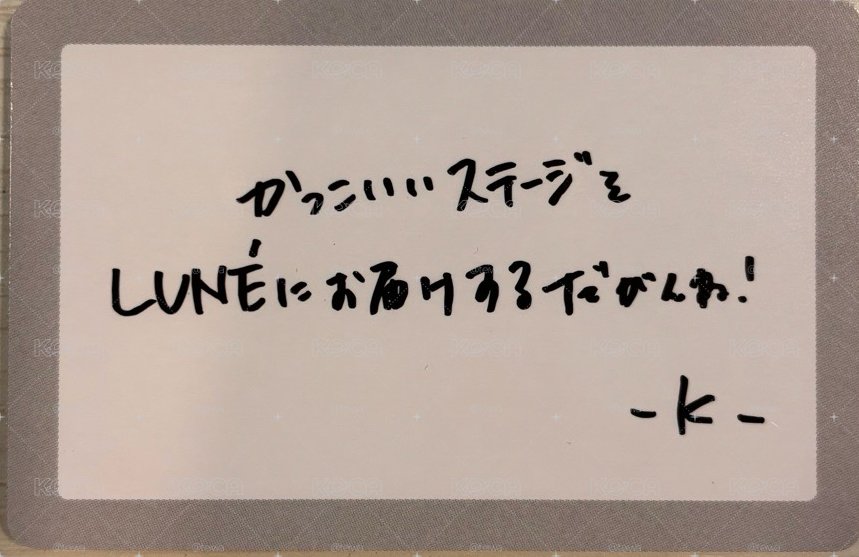 かっこいいステージを
LUNÉにお届けするだがんね!
-K-